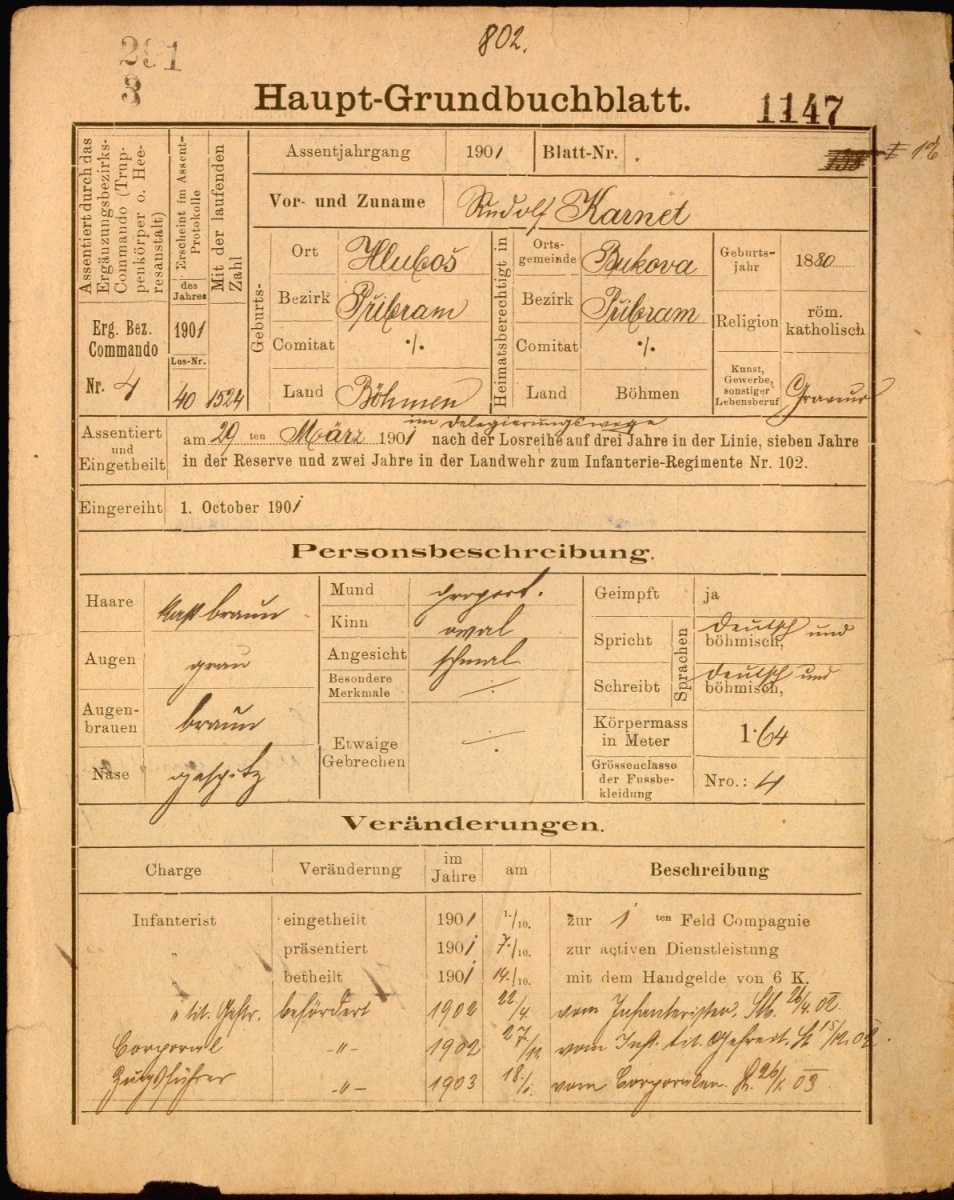 802.
291
3
Haupt-Grundbuchblatt.
1147
Assentiert durch das Ergäuzungsbezirks-Commando (Truppenkörper o. Heeresanstalt)
Erscheint im Assent-Protokolle
des Jahres
Mit der laufenden Zahl
Erg. Bez. Commando
Nr. 4
1901
Los-Nr.
40
1524
Assentjahrgang 1901 Blatt-Nr.
I
Vor- und Zuname Rudolf Karnet
Geburts-
Ort Hluboš
Bezirk Přibram
Comitat ·/.
Land Böhmen
Heimatsberechtigt in
Ortsgemeinde Bukova
Bezirk Přibram
Comitat ·/.
Land Böhmen
Geburtsjahr 1880
Religion röm. katholisch
Kunst, Gewerbe, sonstiger Lebensberuf Graveur
Assentiert und Eingetheilt
im Delegierungswege
am 29 ten März 1901 nach der Losreihe auf drei Jahre in der Linie, sieben Jahre
in der Reserve und zwei Jahre in der Landwehr zum Infanterie-Regimente Nr. 102.
Eingereiht 1. October 1901
Personsbeschreibung.
Haare braun
Augen grau
Augenbrauen braun
Nase gespitz
Mund proport.
Kinn oval
Angesicht schmal
Besondere Merkmale ·/.
Etwaige Gebrechen ·/.
Geimpft ja
Sprachen
Spricht deutsch und böhmisch,
Schreibt deutsch und böhmisch,
Körpermass in Meter 1·64
Grössenclasse der Fussbekleidung Nro.: 4
Veränderungen.
Charge Veränderung im Jahre am Beschreibung
Infanterist eingetheilt 1901 1./10. zur 1 ten Feld Compagnie
„ präsentiert 1901 7./10. zur activen Dienstleistung
betheilt 1901 14./10. mit dem Handgelde von 6 K.
„ tit. Gefr. befördert 1902 22/4. vom Infanteristen.
Corporal -"- 1902 vom Inft. tit. Gefreit.
Zugsführer -"- 1903 vom Corporalen.